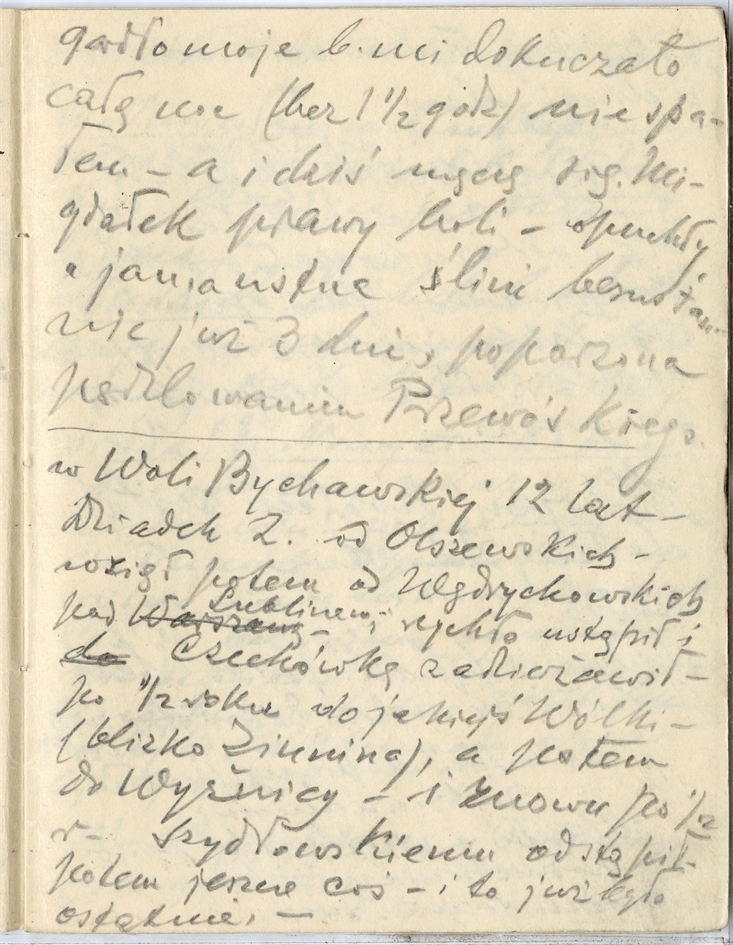 gardło moje b. mi dokuczało
całą noc (bez 1 1/2 godz) nie spa-
łem – a i dziś męczę się. Mi-
gdałek prawy boli – spuchły
a jama ustna ślini bezustan-
nie już 3 dni, poparzona
pędzlowaniem Przewóskiego.
w Woli Bychawskiej 12 lat –
Dziadek Z. od Olszewskich –
wziął potem od Wędrychowskich
pod Warszawą Lublinem; rychło ustąpił i
do Czechówkę zadzierżawił –
po 1/2 roku do jakiejś Wólki –
(blizko Zimnina), a potem
do Wyżnicy – i znowu po 1/2
r – Szydłowskiemu odstąpił –
potem jeszcze coś – i to już było
ostatnie. –